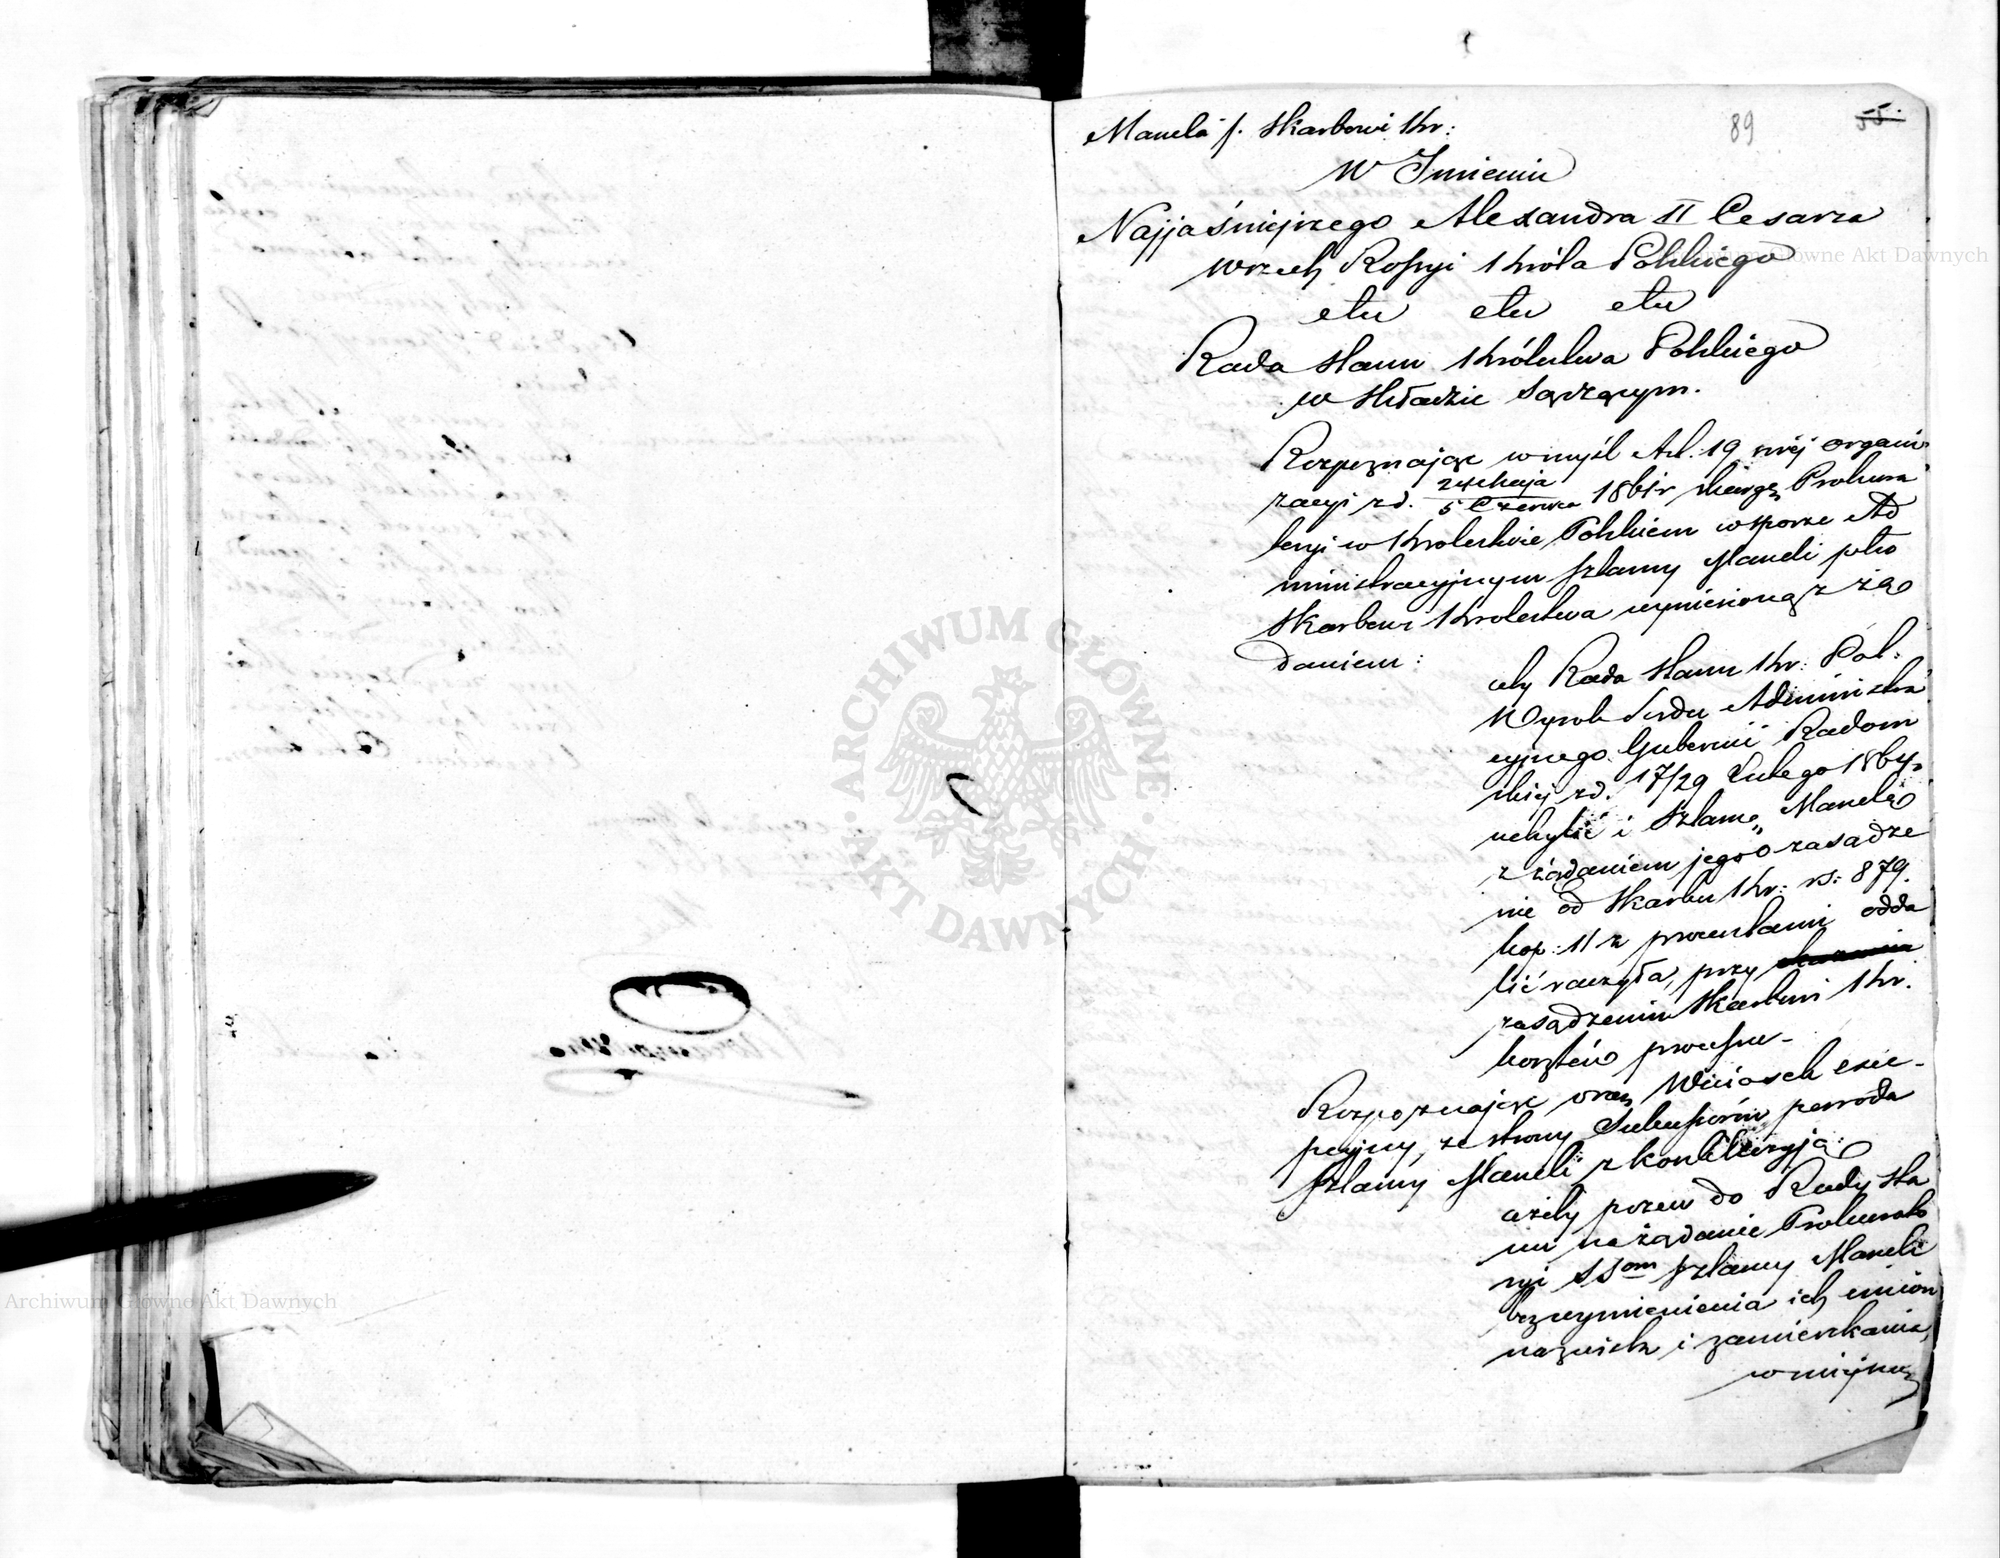 Manela p. Skarbowi Kr:
89
55.
W Imieniu
Najjaśniejszego Alexandra II Cesarza
Wszech Rossyi Króla Polskiego
etc etc etc
Rada Stanu Królestwa Polskiego
w Składzie Sądzącym.
Rozpoznając w myśl Art. 19 swej organi-
zacyi z d. 24 Maja / 5 Czerwca 1861 r skargę Prokura-
toryi w Królestwie Polskiem w sporze Ad
ministracyjnym Szlamy Maneli pko
Skarbowi Królestwa wyniesioną z żą
daniem:
aby Rada Stanu Kr: Pol:
Wyrok Sądu Administra
cyjnego Gubernii Radom
skiej z d. 17/29 Lutego 1864 r.
uchylić i Szlamę Manelę
z żądaniem jego o zasądze
nie od Skarbu Kr: rs: 879.
kop: 11 z procentami odda
lić raczyła, przy
zasądzeniu Skarbowi Kr.
kosztów processu.-
Rozpoznając oraz Wniosek exce-
pcyjny, ze strony Sukcessorów powoda
Szlamy Maneli z konkluzyją:
ażeby pozew do Rady Sta
nu na żądanie Prokurato
ryi SSom Szlamy Maneli
bez wymienienia ich imion
nazwisk i zamieszkania,
w miejscu
ARCHIWUM GŁÓWNE AKT DAWNYCH
Archiwum Główne Akt Dawnych
Archiwum Główne Akt Dawnych